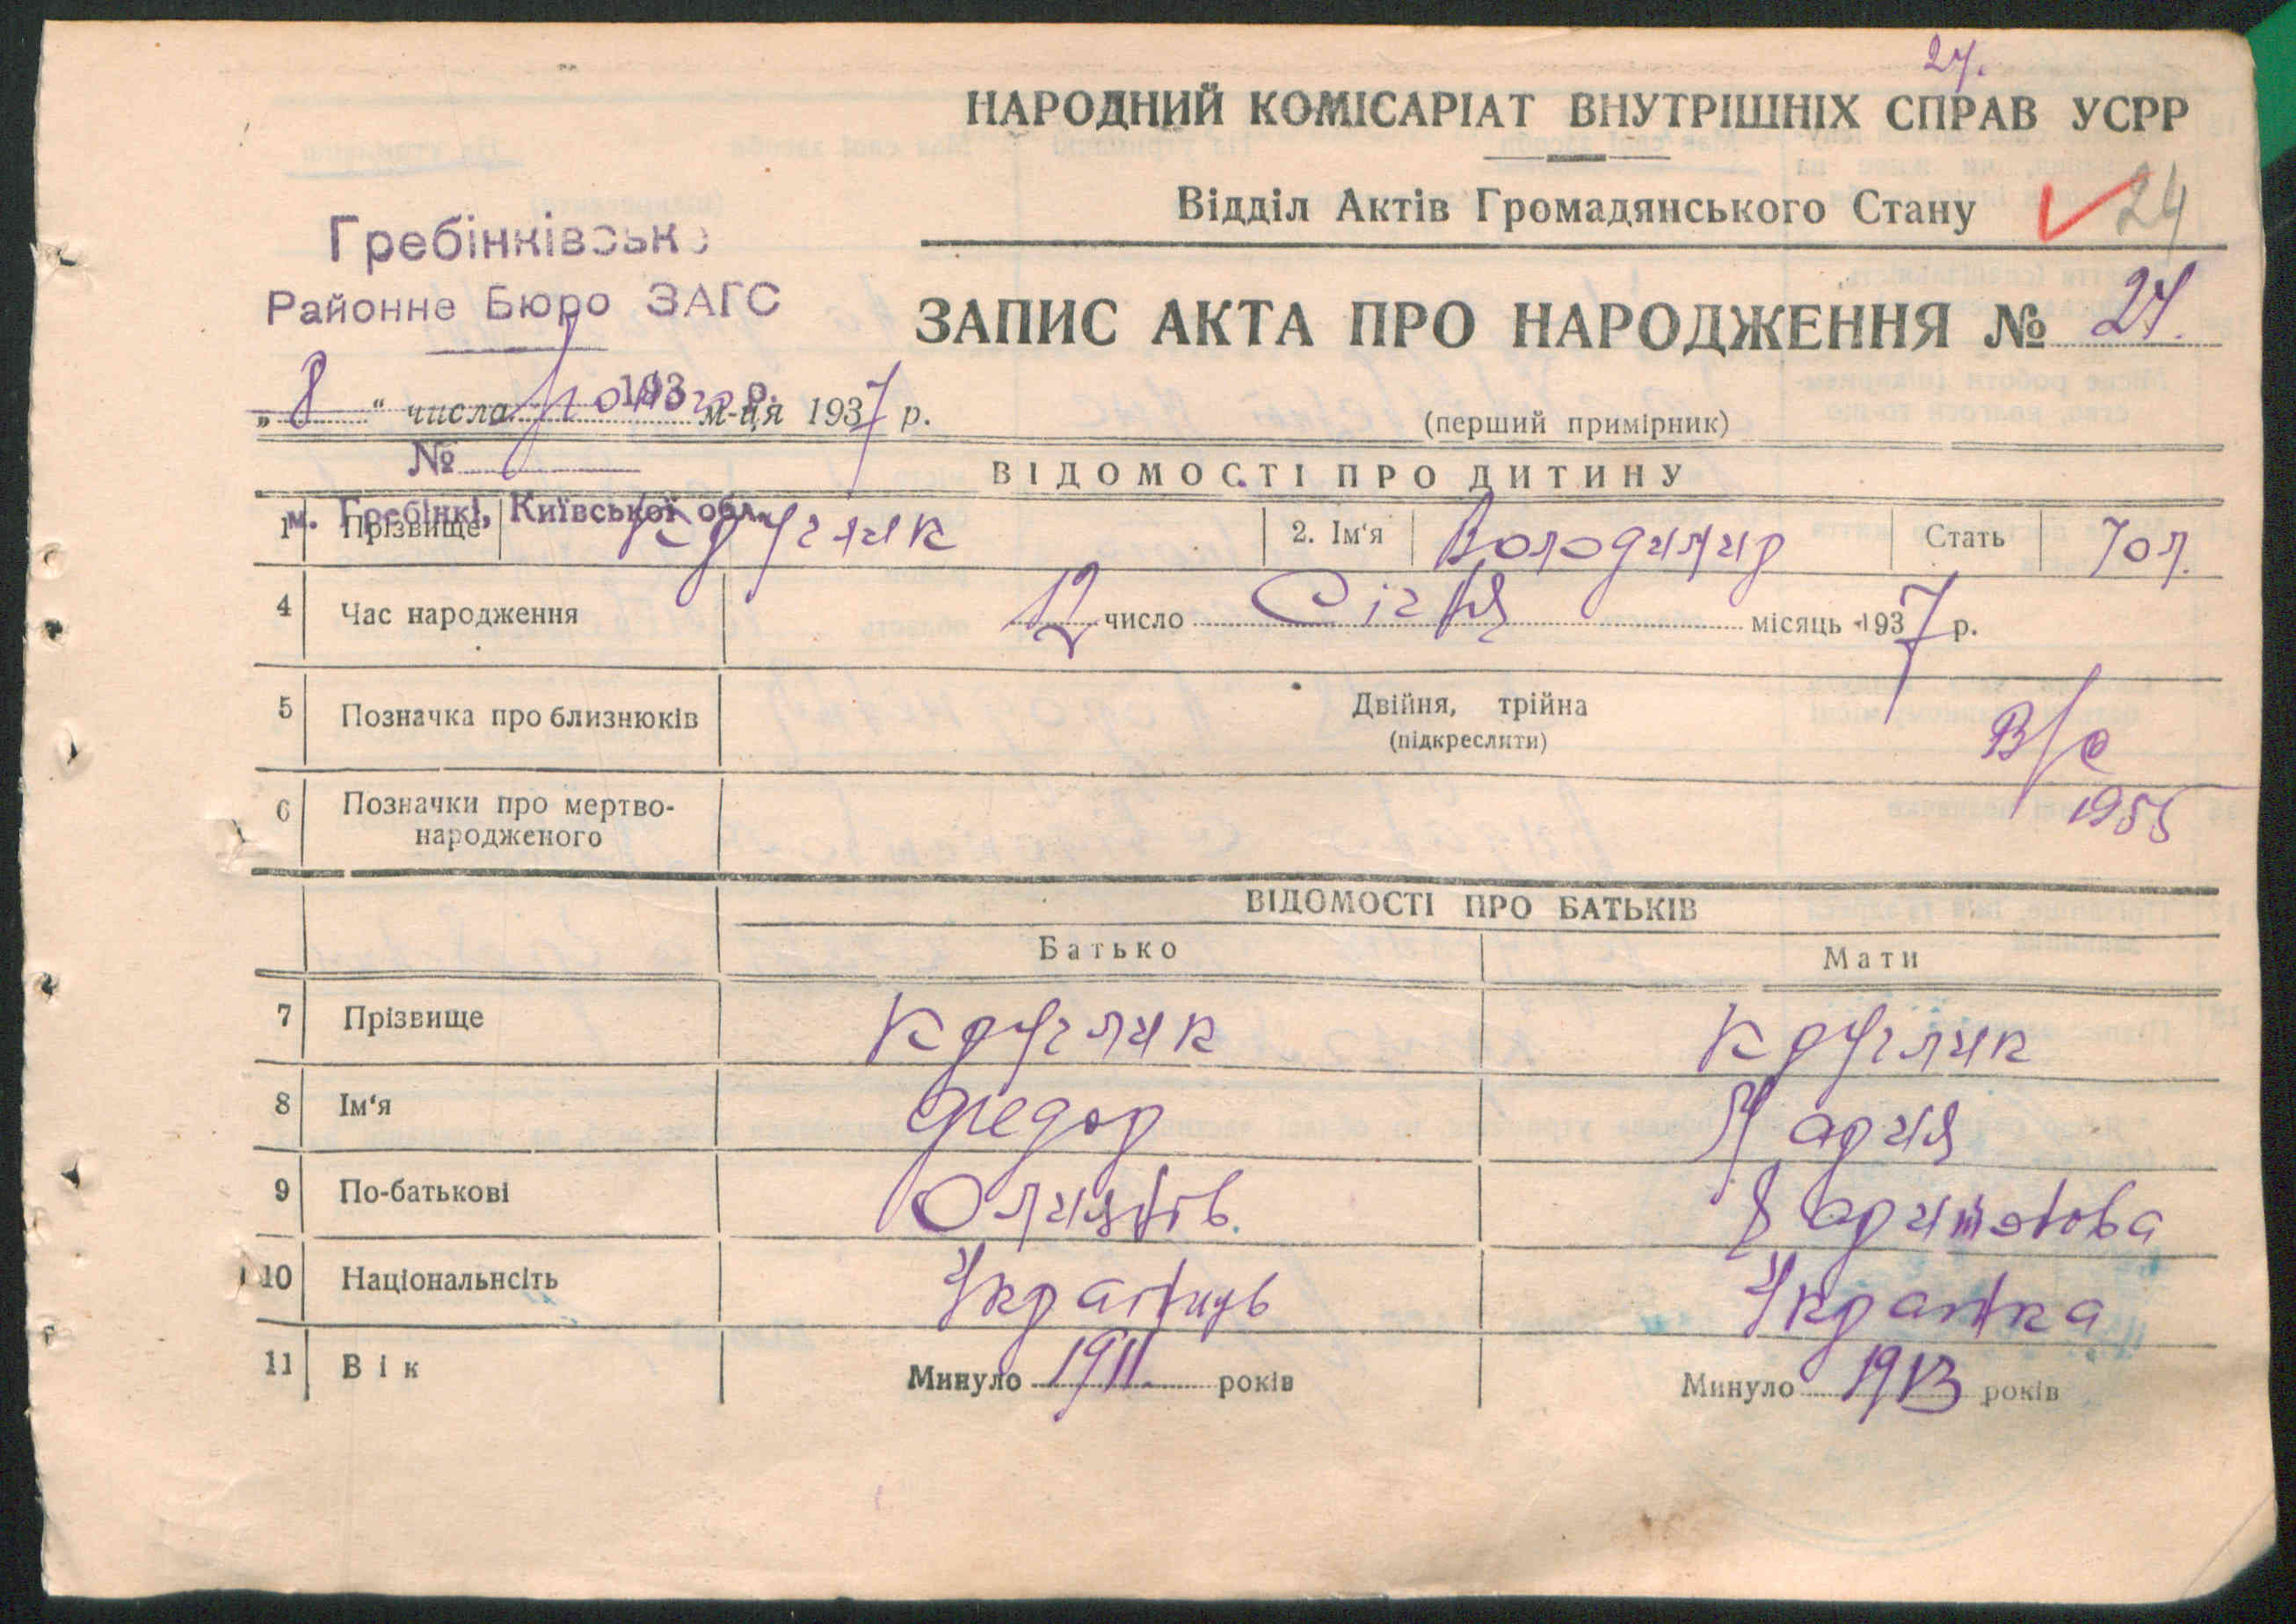 27.
НАРОДНИЙ КОМІСАРІАТ ВНУТРІШНІХ СПРАВ УСРР
Відділ Актів Громадянського Стану
24
Гребінківськ
Районне Бюро ЗАГС
ЗАПИС АКТА ПРО НАРОДЖЕННЯ № 27.
193 р.
„ 8 “ числа лютого м-ця 1937 р.
(перший примірник)
№
ВІДОМОСТІ ПРО ДИТИНУ
м. Гребінкі, Київської обл.
1 Прізвище Круглик 2. Ім‘я Володимир Стать Чол.
4 Час народження 12 число Січня місяць 1937 р.
5 Позначка про близнюків Двійня, трійна
(підкреслити)
1955
6 Позначки про мертво-
народженого
ВІДОМОСТІ ПРО БАТЬКІВ
Батько Мати
7 Прізвище Круглик Круглик
8 Ім‘я Федор Мария
9 По-батькові
10 Національнсіть Українць Українка
11 Вік Минуло 1911. років Минуло 1913 років